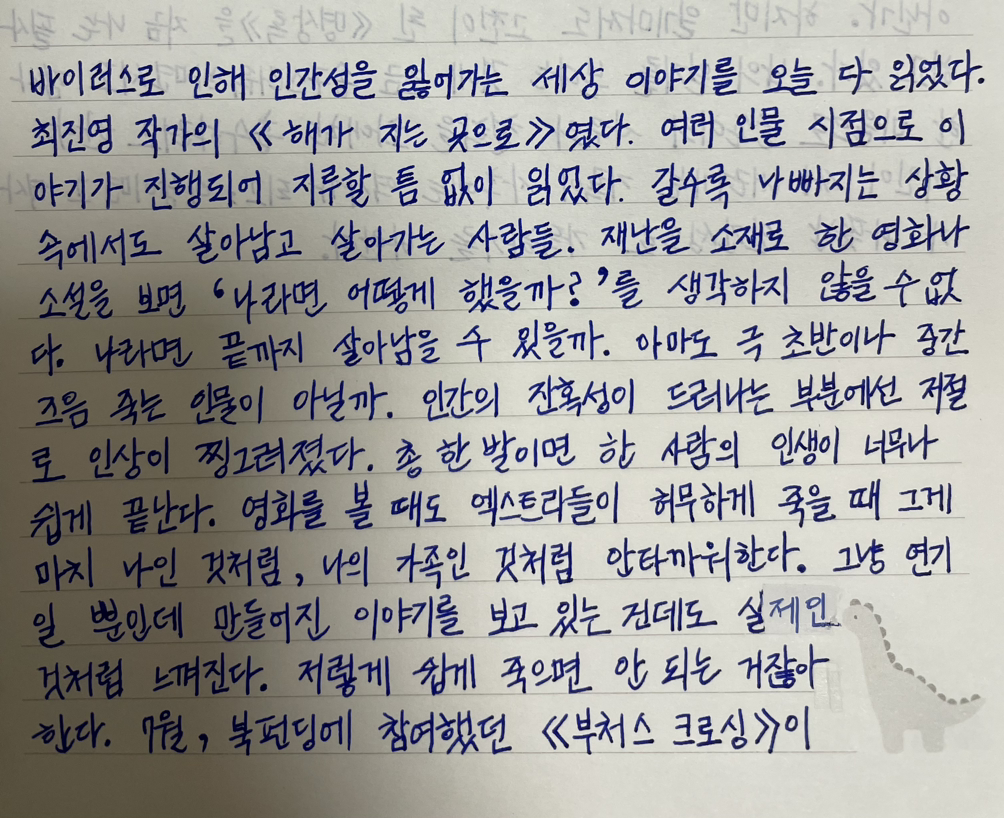 바이러스로 인해 인간성을 잃어가는 세상 이야기를 오늘 다 읽었다.
최진영 작가의 《해가 지는 곳으로》였다. 여러 인물 시점으로 이
야기가 진행되어 지루할 틈 없이 읽었다. 갈수록 나빠지는 상황
속에서도 살아남고 살아가는 사람들. 재난을 소재로 한 영화나
소설을 보면 ‘나라면 어떻게 했을까?’를 생각하지 않을 수 없
다. 나라면 끝까지 살아남을 수 있을까. 아마도 극 초반이나 중간
즈음 죽는 인물이 아닐까. 인간의 잔혹성이 드러나는 부분에선 저절
로 인상이 찡그려졌다. 총 한 발이면 한 사람의 인생이 너무나
쉽게 끝난다. 영화를 볼 때도 엑스트라들이 허무하게 죽을 때 그게
마치 나인 것처럼, 나의 가족인 것처럼 안타까워한다. 그냥 연기
일 뿐인데 만들어진 이야기를 보고 있는 건데도 실제인
것처럼 느껴진다. 저렇게 쉽게 죽으면 안 되는 거잖아
한다. 7월, 북펀딩에 참여했던 《부처스 크로싱》이